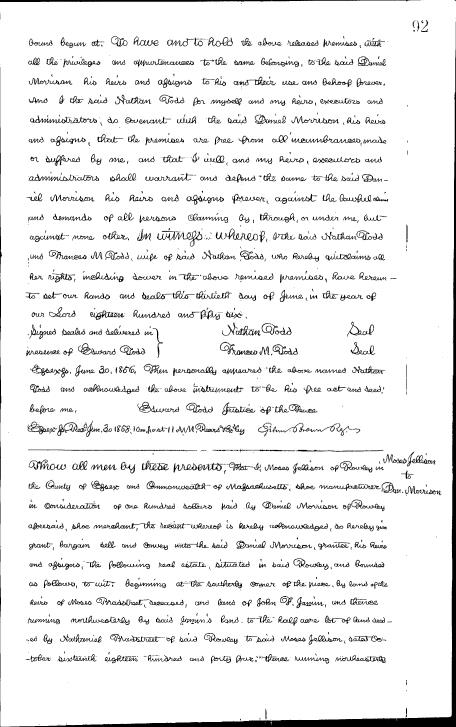 92
bound begun at. To have and to hold the above released premises, with
all the privileges and appurtenances to the same belonging, to the said Daniel
Morrison his heirs and assigns to his and their use and behoof forever.
And I the said Nathan Todd for myself and my heirs, executors and
administrators, do covenant with the said Daniel Morrison, his heirs
and assigns, that the premises are free from all incumbrances, made
or suffered by me, and that I will, and my heirs, executors and
administrators shall warrant and defend the same to the said Dan-
iel Morrison his heirs and assigns forever, against the lawful claims
and demands of all persons claiming by, through, or under me, but
against none other. In witness whereof, I the said Nathan Todd
and Frances M. Todd, wife of said Nathan Todd, who hereby quitclaims all
her rights, including dower in the above remised premises, have hereun-
to set our hands and seals this thirtieth day of June, in the year of
our Lord eighteen hundred and fifty six.
Signed sealed and delivered in } Nathan Todd Seal
presence of Edward Todd Frances M. Todd Seal
Essex, ss. June 30. 1856, Then personally appeared the above named Nathan
Todd and acknowledged the above instrument to be his free act and deed,
before me, Edward Todd Justice of the Peace
Essex ss. Rec'd Jan. 20 1868, 10 m. past 11 A.M. Rec'd & Ex. by
Know all men by these presents, that I, Moses Jellison of Rowley in
Moses Jellison
to
Dan. Morrison
the County of Essex and Commonwealth of Massachusetts, shoe manufacturer,
in consideration of one hundred dollars paid by Daniel Morrison of Rowley
aforesaid, shoe merchant, the receipt whereof is hereby acknowledged, do hereby give
grant, bargain sell and convey unto the said Daniel Morrison, grantee, his heirs
and assigns, the following real estate, situated in said Rowley, and bounded
as follows, to wit: beginning at the southerly corner of the piece, by land of the
heirs of Moses Bradstreet, deceased, and land of John F. and thence
running northwesterly by said land to the half acre lot of land deed-
ed by Nathaniel Bradstreet of said Rowley to said Moses Jellison, dated Oc-
tober sixteenth eighteen hundred and forty four, thence running northeasterly